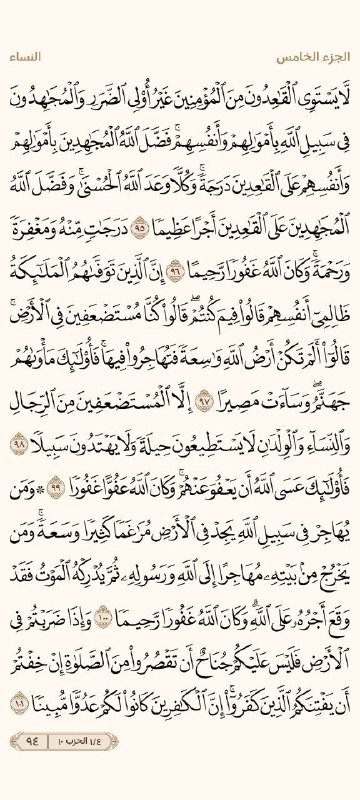 الجزء الخامس النساء
لَّا يَسْتَوِي الْقَاعِدُونَ مِنَ الْمُؤْمِنِينَ غَيْرُ أُوْلِي الضَّرَرِ وَالْمُجَاهِدُونَ
فِي سَبِيلِ اللَّهِ بِأَمْوَالِهِمْ وَأَنفُسِهِمْ ۚ فَضَّلَ اللَّهُ الْمُجَاهِدِينَ بِأَمْوَالِهِمْ
وَأَنفُسِهِمْ عَلَى الْقَاعِدِينَ دَرَجَةً ۚ وَكُلًّا وَعَدَ اللَّهُ الْحُسْنَىٰ ۚ وَفَضَّلَ اللَّهُ
الْمُجَاهِدِينَ عَلَى الْقَاعِدِينَ أَجْرًا عَظِيمًا ٩٥ دَرَجَاتٍ مِّنْهُ وَمَغْفِرَةً
وَرَحْمَةً ۚ وَكَانَ اللَّهُ غَفُورًا رَّحِيمًا ٩٦ إِنَّ الَّذِينَ تَوَفَّاهُمُ الْمَلَائِكَةُ
ظَالِمِي أَنفُسِهِمْ قَالُوا فِيمَ كُنتُمْ ۖ قَالُوا كُنَّا مُسْتَضْعَفِينَ فِي الْأَرْضِ ۚ
قَالُوا أَلَمْ تَكُنْ أَرْضُ اللَّهِ وَاسِعَةً فَتُهَاجِرُوا فِيهَا ۚ فَأُولَٰئِكَ مَأْوَاهُمْ
جَهَنَّمُ ۖ وَسَاءَتْ مَصِيرًا ٩٧ إِلَّا الْمُسْتَضْعَفِينَ مِنَ الرِّجَالِ
وَالنِّسَاءِ وَالْوِلْدَانِ لَا يَسْتَطِيعُونَ حِيلَةً وَلَا يَهْتَدُونَ سَبِيلًا ٩٨
فَأُولَٰئِكَ عَسَى اللَّهُ أَن يَعْفُوَ عَنْهُمْ ۚ وَكَانَ اللَّهُ عَفُوًّا غَفُورًا ٩٩ ۞ وَمَن
يُهَاجِرْ فِي سَبِيلِ اللَّهِ يَجِدْ فِي الْأَرْضِ مُرَاغَمًا كَثِيرًا وَسَعَةً ۚ وَمَن
يَخْرُجْ مِن بَيْتِهِ مُهَاجِرًا إِلَى اللَّهِ وَرَسُولِهِ ثُمَّ يُدْرِكْهُ الْمَوْتُ فَقَدْ
وَقَعَ أَجْرُهُ عَلَى اللَّهِ ۗ وَكَانَ اللَّهُ غَفُورًا رَّحِيمًا ١٠٠ وَإِذَا ضَرَبْتُمْ فِي
الْأَرْضِ فَلَيْسَ عَلَيْكُمْ جُنَاحٌ أَن تَقْصُرُوا مِنَ الصَّلَاةِ إِنْ خِفْتُمْ
أَن يَفْتِنَكُمُ الَّذِينَ كَفَرُوا ۚ إِنَّ الْكَافِرِينَ كَانُوا لَكُمْ عَدُوًّا مُّبِينًا ١٠١
١/٤ الحزب ١٠ ٩٤